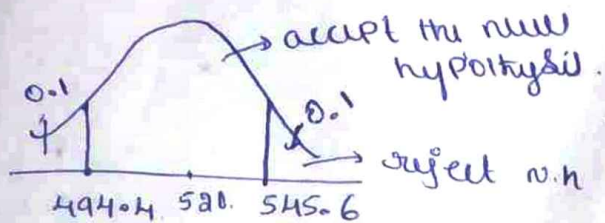 accept the null
hypolthysis.
0.1
0.1
reject n.h
494.4 520. 545.6